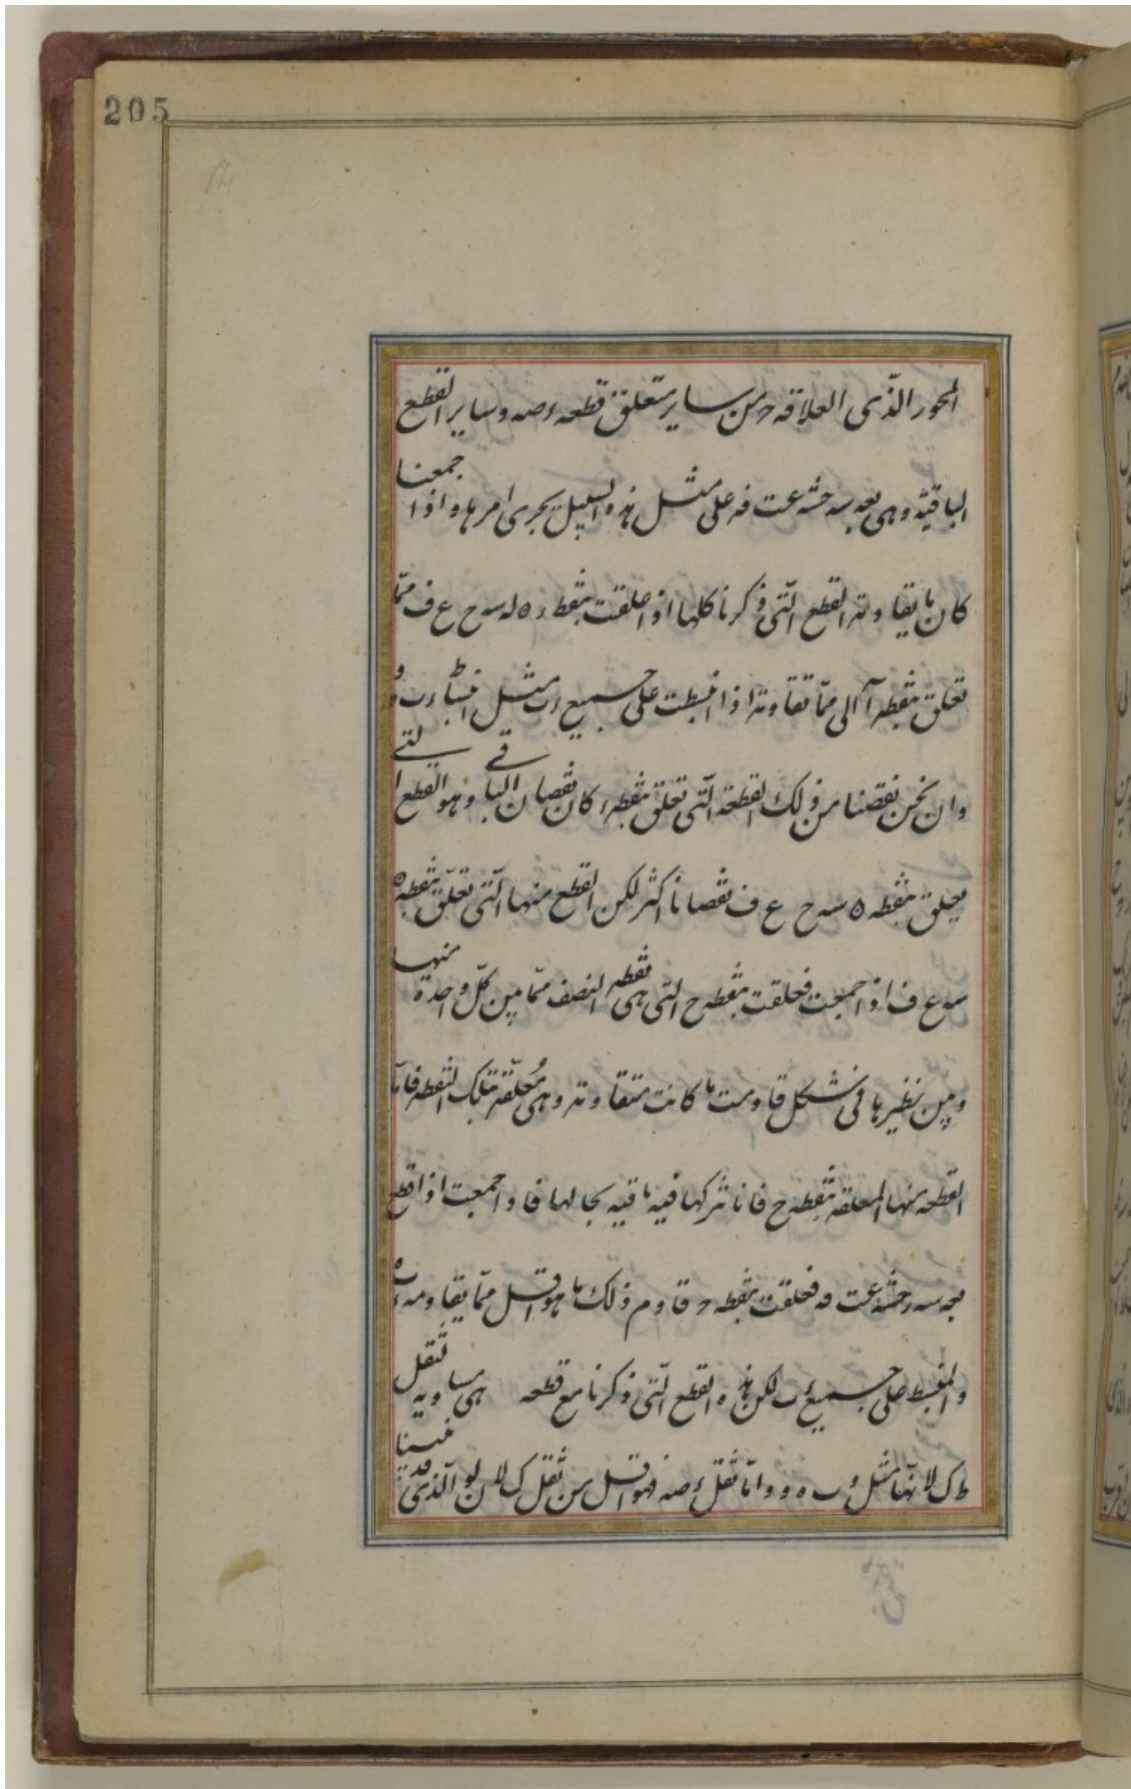 205
المحور الذّى العلاقه ح من ساير متعلق قطعه ء صه وساير القطع
الباقيّة وهى بعد سه خشه عت فه على مثل هذه السبيل يجرى امرها واذا جمعنا
كان ما يقاوته القطع الّتى ذكرنا كلها اذ اعلقت بنقط ء ه له سه ح ع ف ممّا
تعلق بنقطه آ الى ممّا تقاوته اذا انبسطت على جميع ءب مثل انبساط ءب و
وان نحن نقصنا من ذلك القطعة الّتى تعلق بنقطه ء كان نقصان الباقى وهو القطع التى
يعلق بنقطه ه سه ح ع ف نقصانا اكثر لكن القطع منها الّتى تعلّق بنقطه ه
سه ع ف اذ اجمعت فعلقت بنقطه ح التى هى نقطه النصف ممّا بين كلّ واحدة منها
وبين نظيرها فى شكل قاومت ما كانت متقاوته وهى مُعلّقة بتلك النقطه فامّا
القطعه منها المعلقه بنقطه ح فانا نتركها فيه باقيه بحالها فاواجمعت اذا قطع
بعد سه رخشه عت فه فعلقت بنقطه ح قاوم ذلك ما هو اقل ممّا يقاومه ءه
والمنبسط على جميع ءب لكن هذه القطع الّتى ذكرنا مع قطعه هى مساويه لثقل
ط ك لانّها مثل و ب ه وو وامّا ثقل ء صه فهو اقل من ثقل ك لان لو الّذى قد بيّنا